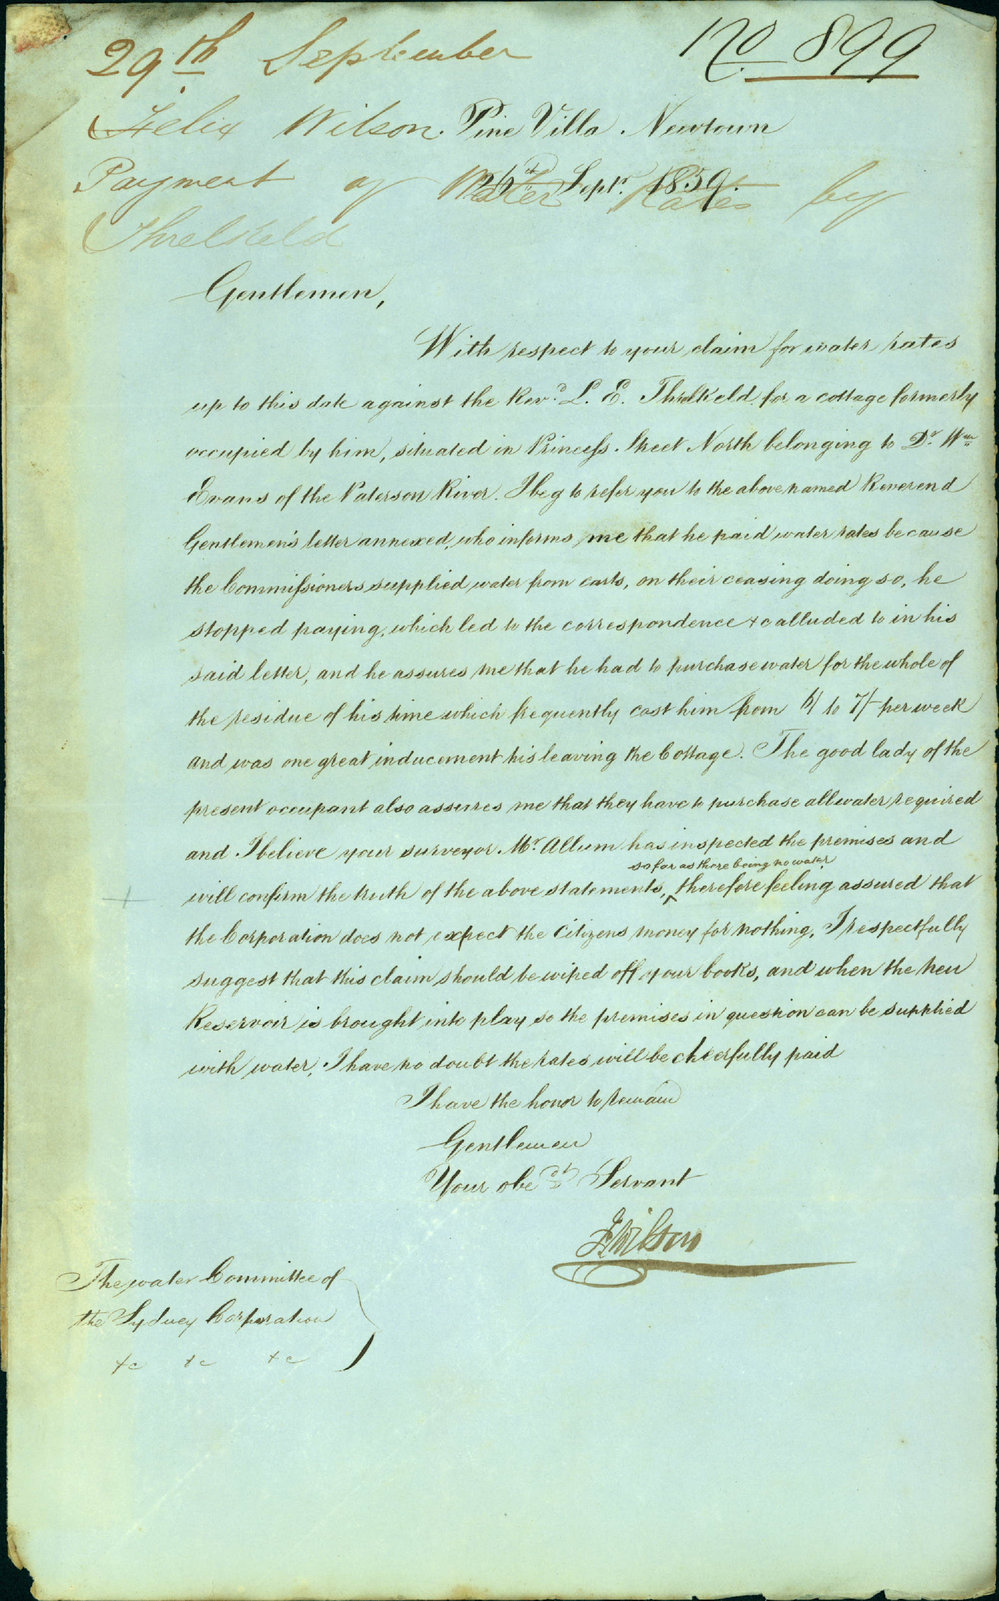 29th September No 899
Felix Wilson. Pine Villa. Newtown
Payment of Water Rates by
26th Septr. 1859.
Threlkeld
Gentlemen,
With respect to your claim for water rates
up to this date against the Revd. L. E. Threlkeld for a cottage formerly
occupied by him, situated in Princess Street North belonging to Dr. Wm
Evans of the Paterson River. I beg to refer you to the above named Reverend
Gentlemens letter annexed, who informs me that he paid water rates because
the Commissioners supplied water from carts, on their ceasing doing so, he
stopped paying, which led to the correspondence &c alluded to in his
said letter, and he assures me that he had to purchase water for the whole of
the residue of his time which frequently cost him from 6/ to 7/ per week
and was one great inducement his leaving the Cottage. The good lady of the
present occupant also assures me that they have to purchase all water required
and I believe your surveyor Mr. Allum has inspected the premises and
so far as there being no water
will confirm the truth of the above statements, therefore feeling assured that
the Corporation does not expect the Citizens money for nothing, I respectfully
suggest that this claim should be wiped off your books, and when the new
Reservoir is brought into play, so the premises in question can be supplied
with water, I have no doubt the rates will be cheerfully paid
I have the honor to remain
Gentlemen
Your obedt Servant
F Wilson
The water Committee of
the Sydney Corporation
&c &c &c